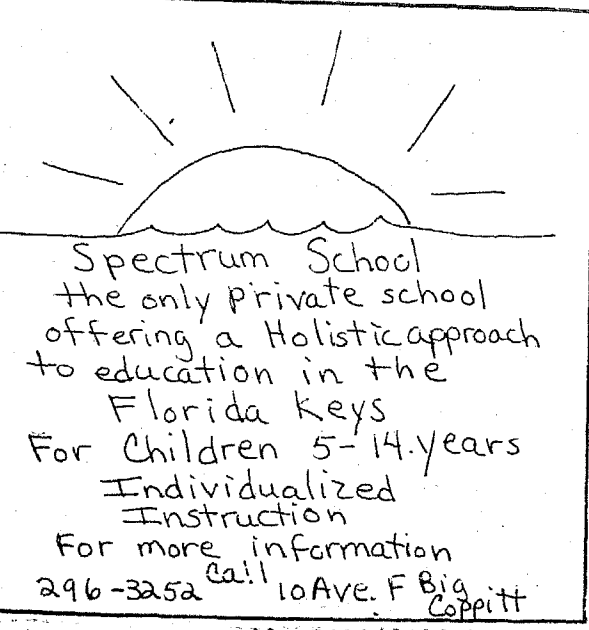 Spectrum School
the only private school
offering a Holistic approach
to education in the
Florida Keys
For Children 5-14.years
Individualized
Instruction
For more information
296-3252 Call 10 Ave. F Big
Coppitt